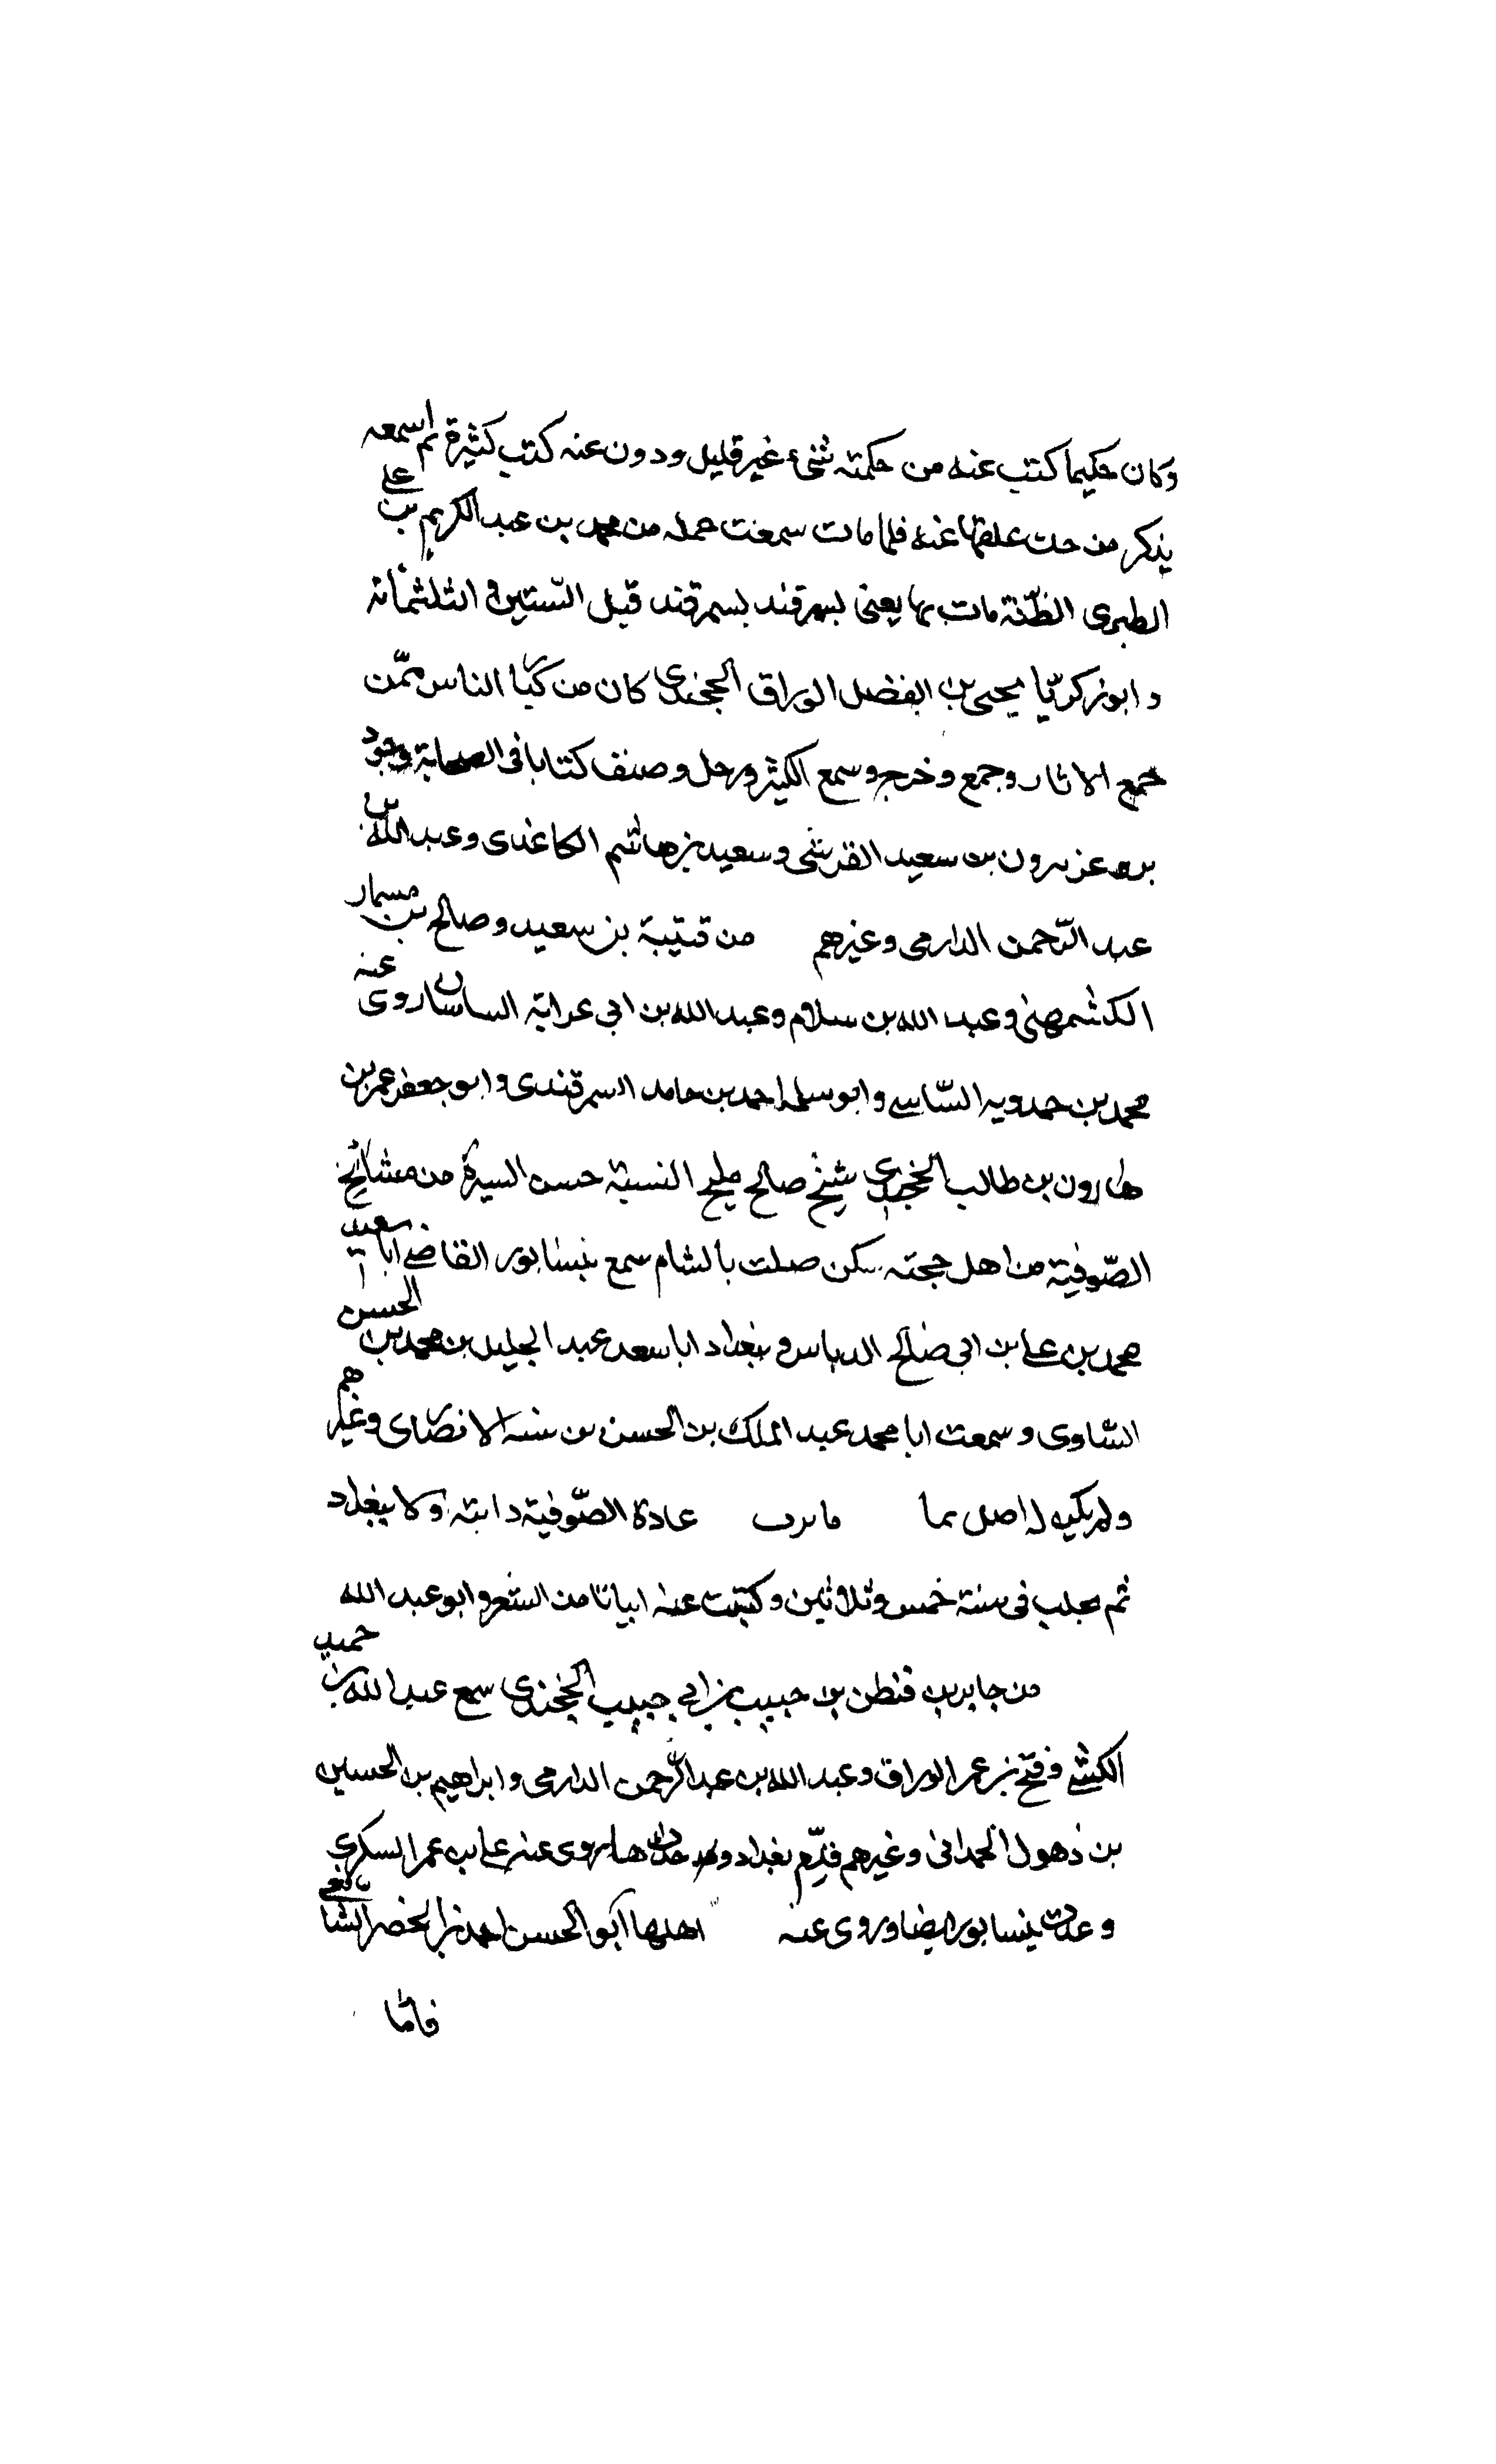 وكان حكيما كتب عنه من حكمته شئ غير قليل ودون عنه كتب كثيرة لم اسمعه
يذكر من علقها عنه فلما مات سمعت من محمد بن عبد الكريم بن علي
الطبرى الظنة مات بها يعنى بسمرقند بسمرقند قبل الستين و الثلثمائة
وابو زكريا يحيى بن الفضل الوراق الخجندى كان من كبار الناس ممن
جمع الاثار وجمع وخرج وسمع الكثير ورحل وصنف كتابا فى الصحابة وجود
عزيرون بن سعيد القرشى وسعيد بن هاشم الكاغذى وعبد الله بن
عبد الرحمن الدارمى وغيرهم من قتيبة بن سعيد وصالح بن مسمار
الكشمهنى وعبد الله بن سلام وعبد الله بن ابى عرابة روى عنه
محمد بن حمدويه الشاسى وابو سلمه احمد بن حامد السمرقندى وابو جعفر عمر بن
هارون بن طالب الخجندى شيخ صالح مليح النسبة حسن السيرة من مشائخ
الصوفية من اهل سكن بالشام سمع بنيسابور القاضى ابا سعيد
محمد بن على بن ابى صالح الدباس و ببغداد ابا سعد عبد الجليل بن محمد بن الحسن
الساوى وسمعت ابا محمد عبد الملك بن الحسن بن الانصارى وغيرهم
ولم يكن له اصل بما عادة الصوفية ولا ببغداد
ثم بحلب فى سنة خمس وثلاثين وكتبت عنه ابياتا من الشعر وابو عبد الله
من جابر بن قطن بن حبيب بن ابى حبيب الخجندى سمع عبد الله بن حميد
الكشى وفتح بن عمر الوراق وعبد الله بن عبد الرحمن الدارمى وابراهيم بن الحسين
بن ذهول الهمدانى وغيرهم قدم بغداد وحدث بها روى عنه على بن عمر السكرى
وحدث بنيسابور ايضا وروى عنه اهلها ابو الحسن احمد بن الخضر الشافعى
فاما